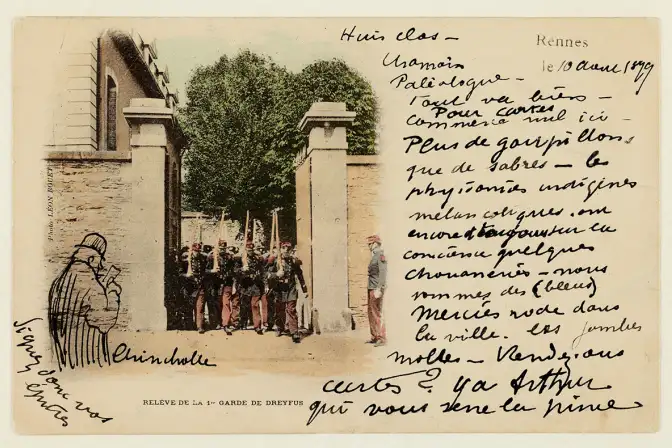 Rennes
le 10 Aout 1899
Huis clos -
Chamoin
Paléologue -
Tout va bien -
Pour cartes
commerce nul ici -
Plus de goupillons
que de sabres - les
physionomies indigènes
mélancoliques. ont
encore toujours sur la
conscience quelques
chouanneries - nous
sommes des (bleus)
Mercier rode dans
la ville. les jambes
molles - Rendez-vous
cartes? ya Arthur
qui vous serre la pince
Photo LÉON BOUET
Chincholle
Signez donc vos
épitres
RELÈVE DE LA 1re GARDE DE DREYFUS